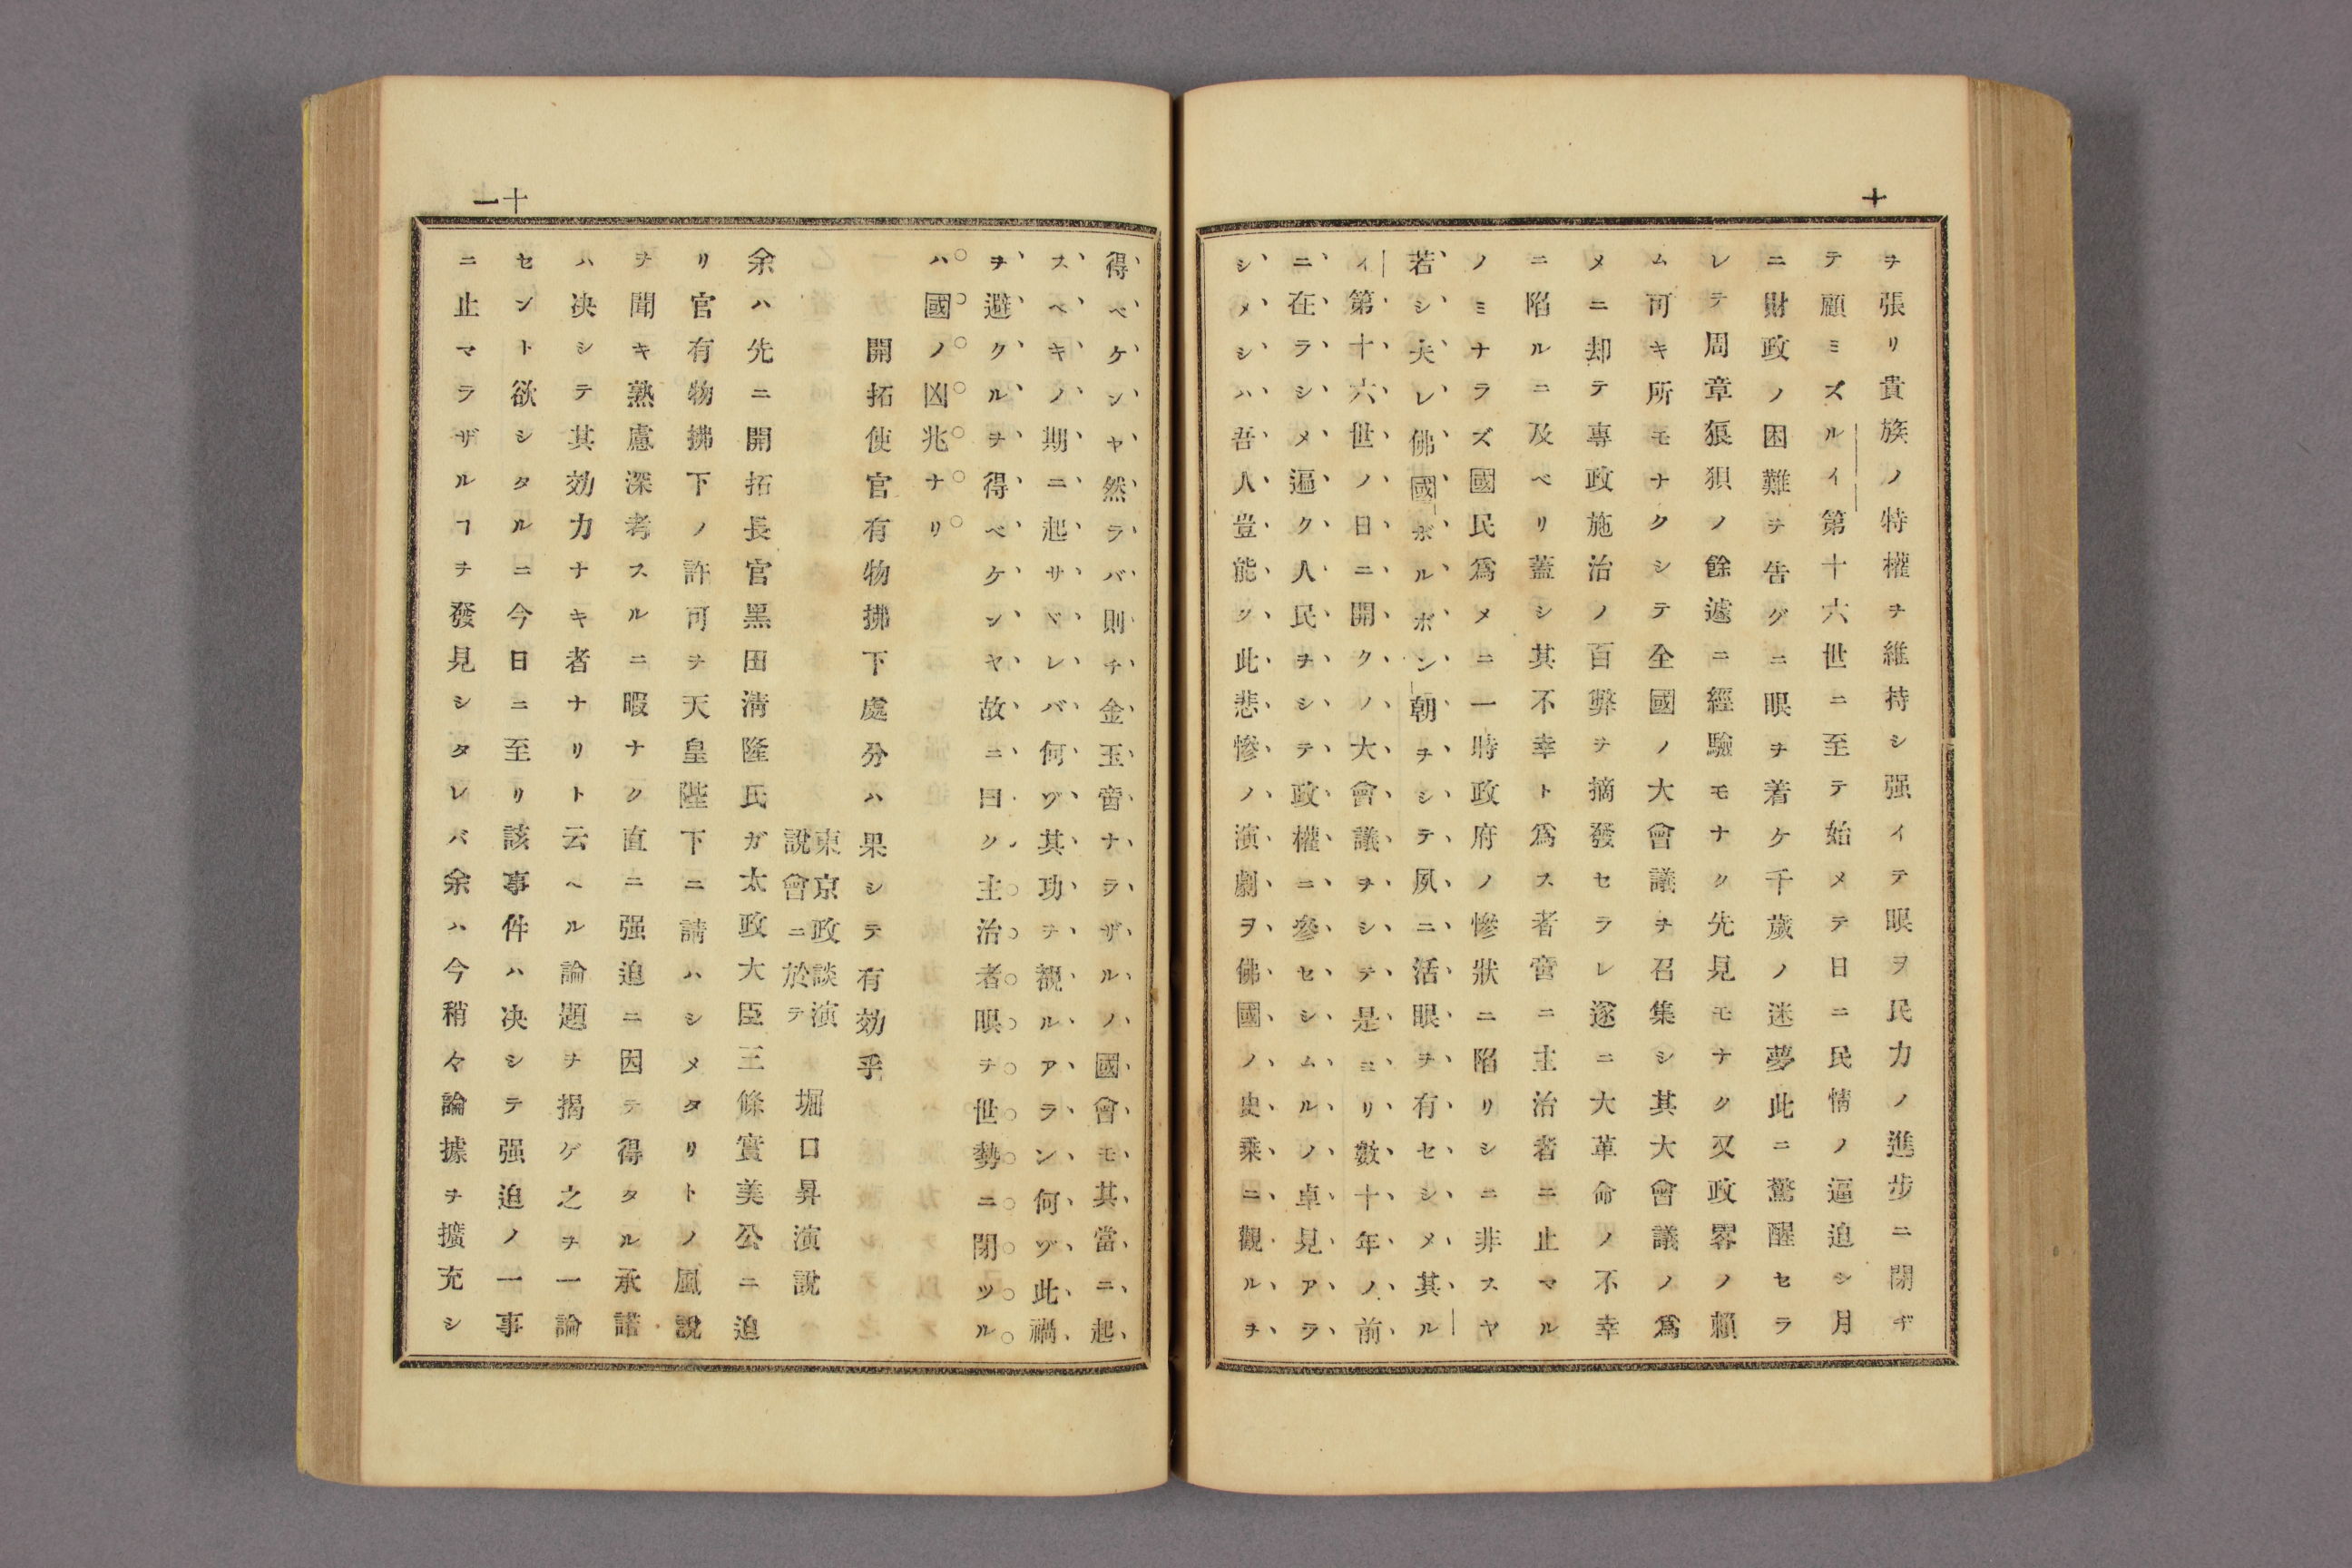 十
ヲ張リ貴族ノ特權ヲ維持シ强イテ眼ヲ民力ノ進步ニ閉ヂ
テ顧ミズルイ第十六世ニ至テ始メテ日ニ民情ノ逼迫シ月
ニ財政ノ困難ヲ告グニ眼ヲ着ケ千歲ノ迷夢此ニ驚醒セラ
レテ周章狼狽ノ餘遽ニ經驗モナク先見モナク又政畧ノ賴
ム可キ所モナクシテ全國ノ大會議ヲ召集シ其大會議ノ爲
メニ却テ專政施治ノ百弊ヲ摘發セラレ遂ニ大革命ノ不幸
ニ陷ルニ及ベリ蓋シ其不幸ト爲ス者啻ニ主治者ニ止マル
ノミナラズ國民爲メニ一時政府ノ慘狀ニ陷リシニ非スヤ
若シ夫レ佛國ボルボン朝ヲシテ夙ニ活眼ヲ有セシメ其ル
イ第十六世ノ日ニ開クノ大會議ヲシテ是ヨリ數十年ノ前
ニ在ラシメ遍ク人民ヲシテ政權ニ參セシムルノ卓見アラ
シメシハ吾人豈能ク此悲慘ノ演劇ヲ佛國ノ史乘ニ觀ルヲ
十一
得ベケンヤ然ラバ則チ金玉啻ナラザルノ國會モ其當ニ起
スベキノ期ニ起サヾレバ何ヅ其功ヲ觀ルアランン何ヅ此禍
ヲ避クルヲ得ベケンヤ故ニ曰ク主治者眼ヲ世勢ニ閉ツル
ハ國ノ凶兆ナリ
開拓使官有物拂下處分ハ果シテ有効乎
東京政談演
說會ニ於テ
堀口昇演說
余ハ先ニ開拓長官黑田淸隆氏ガ太政大臣三條實美公ニ迫
リ官有物拂下ノ許可ヲ天皇陛下ニ請ハシメタリトノ風說
ヲ聞キ熟慮深考スルニ暇ナク直ニ强迫ニ因テ得タル承諾
ハ决シテ其効力ナキ者ナリト云ヘル論題ヲ揭ゲ之ヲ一論
セント欲シタルニ今日ニ至リ該事件ハ决シテ强迫ノ一事
ニ止マラザルヿヲ發見シタレバ余ハ今稍々論據ヲ擴充シ